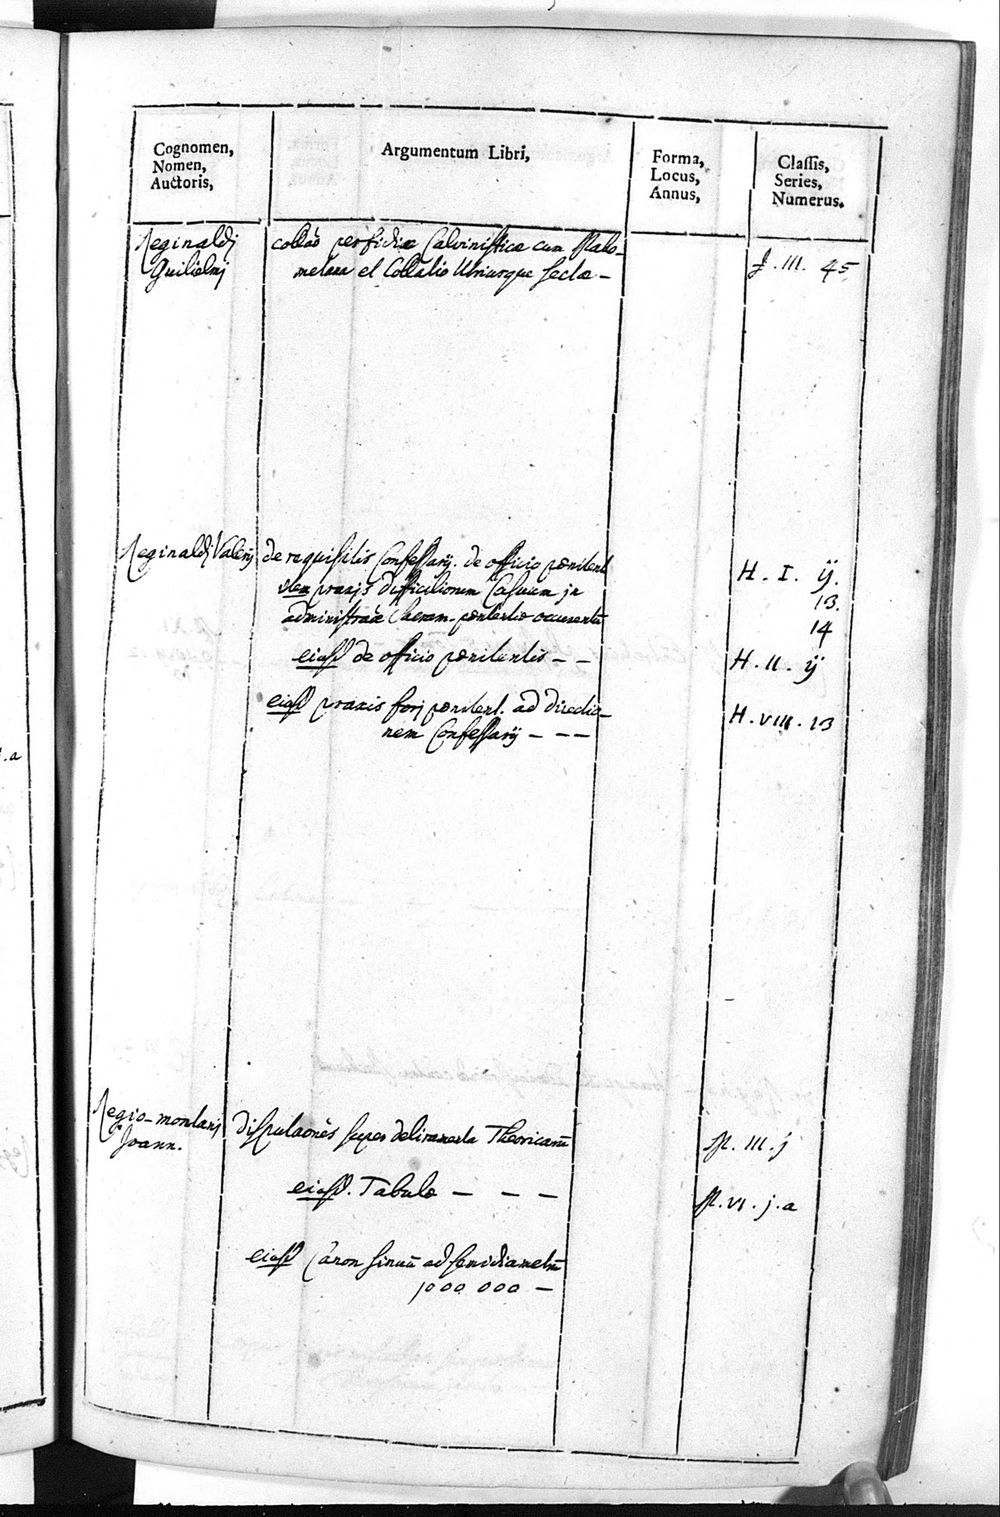 Cognomen,
Nomen,
Auctoris,
Argumentum Libri,
Forma,
Locus,
Annus,
Classis,
Series,
Numerus.
Reginaldj
Guilielmj
collaõ perfidiæ Calvinisticæ cum Maho-
metana et Collatio Utriusque sectæ -
J. III. 45
Reginaldj Valerij
de requisitis Confessarij. de officio pœnitent
item praxis difficiliorum Casuum jn
administraõe Sacram. pœnitentiæ occurentiũ
H. I. ij.
13.
14
eiusd de officio pœnitentis - -
H. II. ij
eiusd praxis forj pœnitent. ad directio-
nem Confessarij - - -
H. VIII. 13
Regio-montanj
Joann.
disputaonẽs super deliramenta Theoricarũ
M. III. j
eiusd. Tabulæ - - -
M. VI. j. a
eiusd Canon sinuũ ad semidiametrũ
1000 000 -
.a